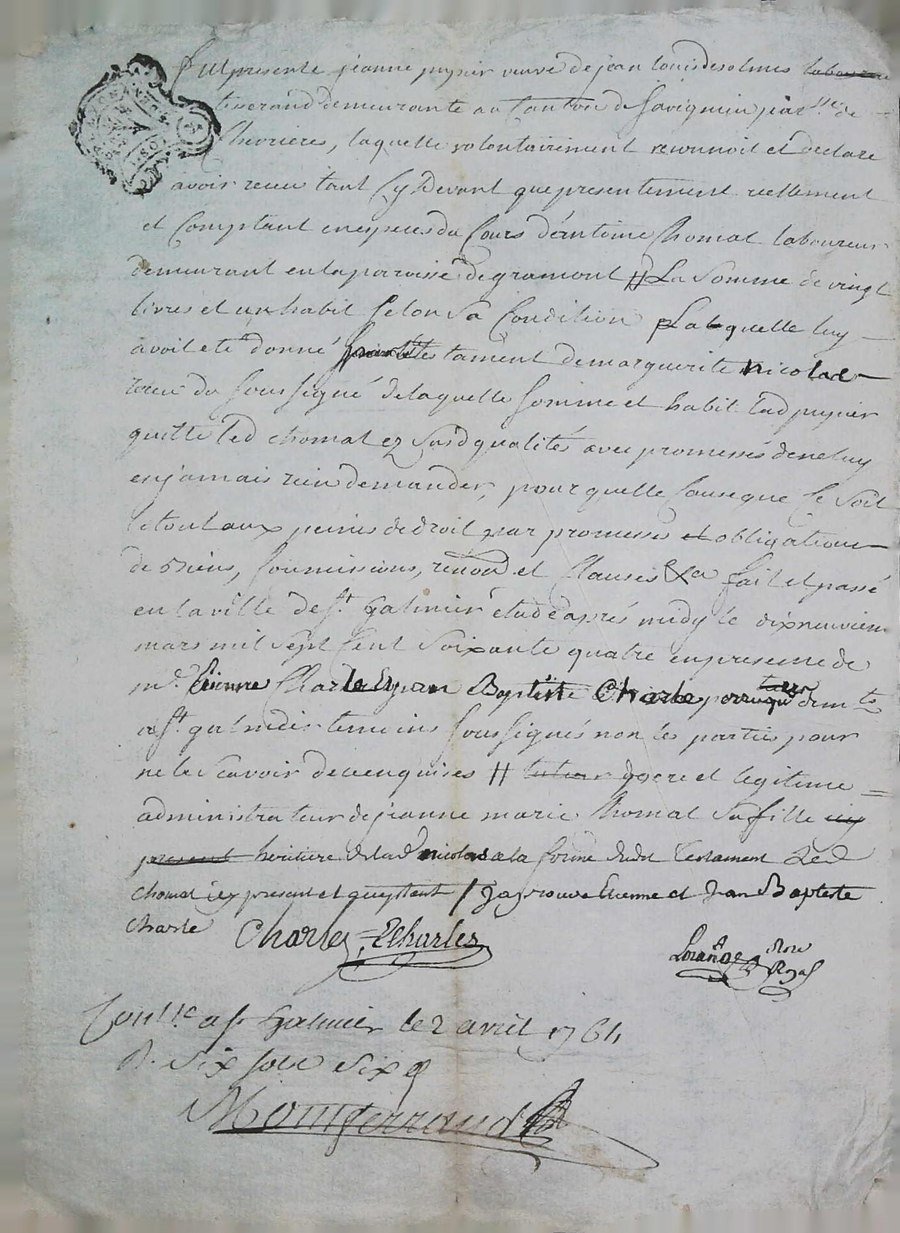 Fut presente jeanne pupier veuve de jean louis desolmes laboureur
tisserand demeurante au Canton de Savignieu parsse de
Chevrieres, laquelle volontairement reconnoit et declare
avoir receu tant Cy Devant que presentement reellement
et Comptant en especes du Cours d'antoine Chomat laboureur
demeurant en la paroisse de gramont // La Somme de vingt
livres et un habit Selon Sa Condition laquelle luy
avoit eté donné par le testament de marguerite nicolas
receu du Soussigné de laquelle Somme et habit lad pupier
quitte led chomat ez susd qualités avec promesses de ne luy
en jamais rien demander, pour quelle Cause que Ce Soit
le tout aux peines de droit par promesses et obligations
de biens, Soumissions, renond et Clauses &a fait et passé
en la ville de St galmier etude après midy le dix neuvieme
mars mil Sept Cent Soixante quatre en presence de
mr. Etienne Charle et jean Baptiste Charle perruquier demts
a St galmier temoins Soussignés non les parties pour
ne le Scavoir de ce enquises // tuteur pere et legitime
administrateur de jeanne marie Chomat Sa fille icy
present heritiere de lad nicolas a la forme dudit testament Led
chomat icy present et aceptant / J'approuve Etienne et Jean Baptiste
Charle Charles Echarles
Lorange Nore
Royal
Conllé a St Galmier le 2 avril 1764
R. Six Sols Six d
Montferrand